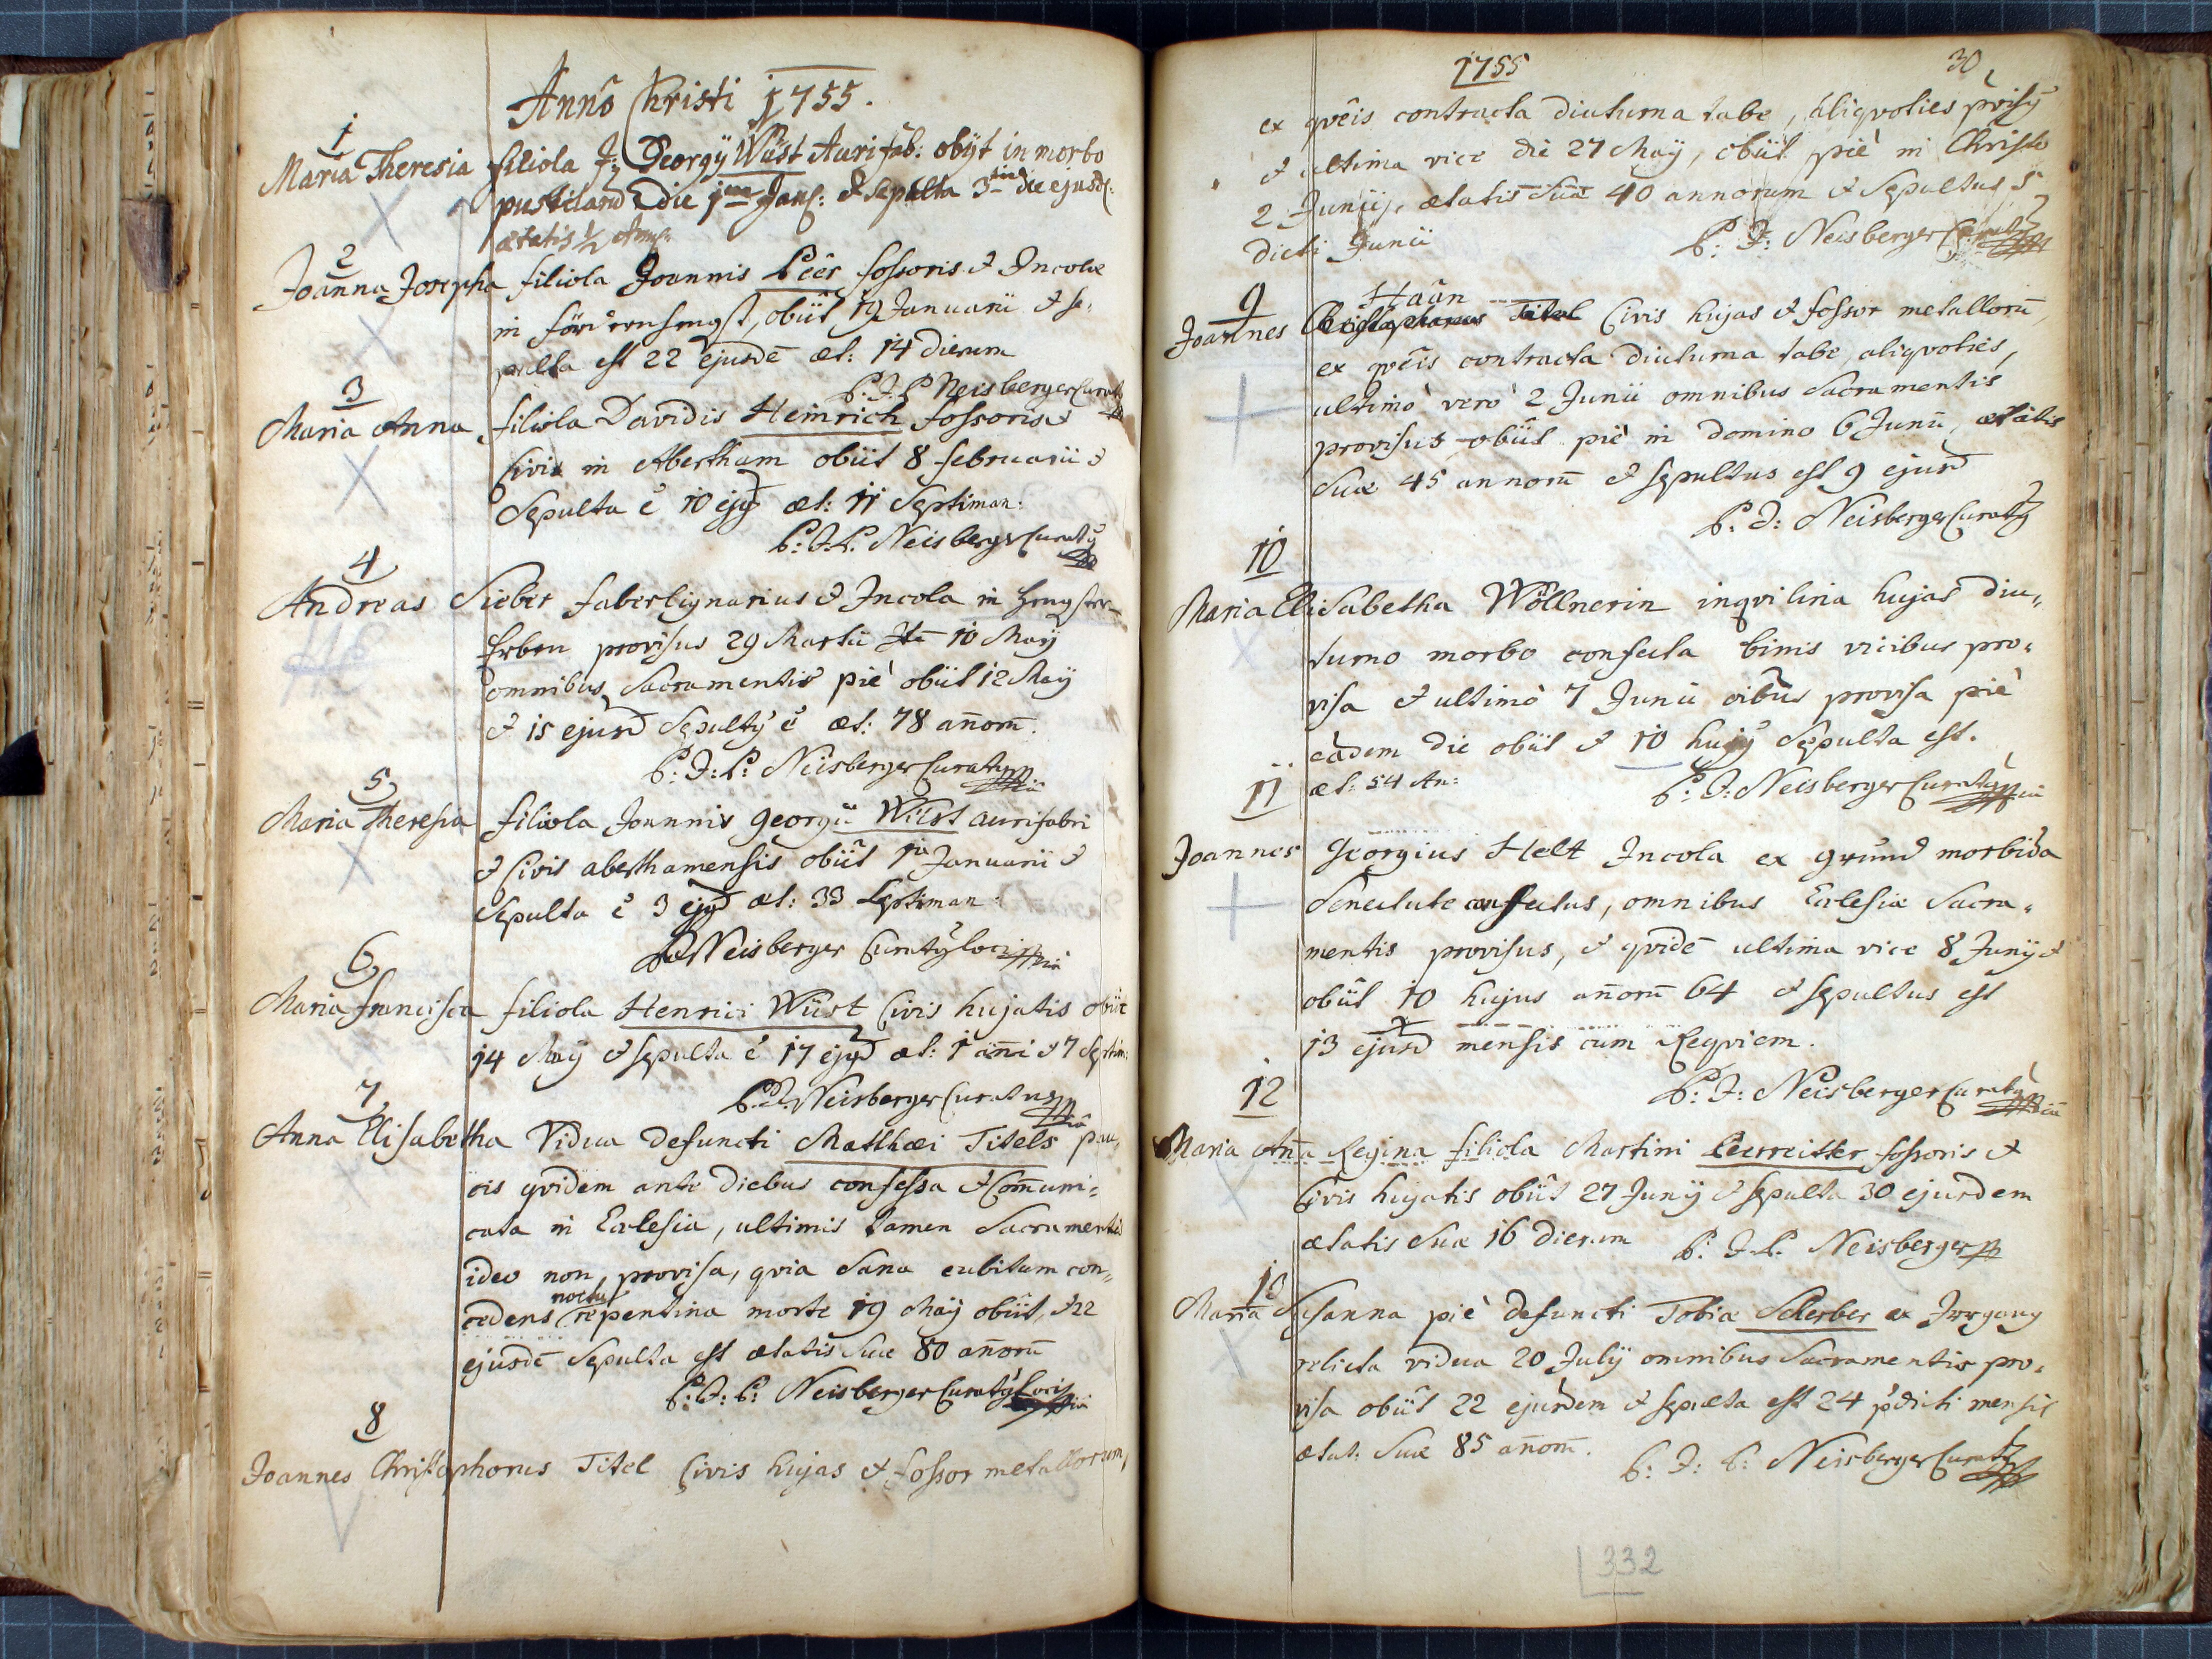 Anno Christi 1755.
1
Maria Theresia filiola J: Georgÿ Wüst Aurifab: obÿt in morbo
pustilarū die 1ma Janͬ: & sepulta 3tia die ejusd:
ætatis ½ Ann:
2
Joanna Josepha filiola Joannis Leer fossoris & Incolæ
in obiit 19 Januarii & se„
pulta est 22 ejusdē æt: 14 dierum
P. J. P. Neisberger Curatꝯ
3
Maria Anna filiola Davidis Heinrich fossoris &
Civis in Abertham obiit 8 februarii &
Sepulta ē 10 ejꝯd æt: 11 Septiman:
P: J. P. Neisberger Curatꝯ
4
Andreas Sieber faber lignarius & Incola in Hengster-
Erben provisus 29 Martii 10 Maÿ
omnibus Sacramentis piè obiit 12 Maÿ
& 15 ejusd Sepultꝯ ē æt: 78 añorū.
P: J: P: Neisberger Curatꝯ
5
Maria Theresia filiola Joannis Georgii Wüst aurifabri
& Civis aberthamensis obiit 1a Januarii &
Sepulta ē 3 ejꝯd æt: 33 Septiman:
Neisberger Curatꝯ loci
6
Maria Francisca filiola Henrici Wüst Civis hujatis obiit
14 Maÿ & sepulta ē 17 ejꝯd æt: 1 añi & 7 Septim:
P. J. Neisberger Curatus
7
Anna Elisabetha Vidua defuncti Matthæi Titels pau„
cis qvidem ante diebus confessa & Comuni„
cata in Ecclesia, ultimis tamen Sacramentis
ideo non provisa, qvia Sana cubitum con„
cedens noctu repentina morte 19 Maÿ obiit, & 22
ejusdē Sepulta est ætatis Suæ 80 añorū
P: J: P: Neisberger Curatꝯ Loci
8
Joannes Christophorus Titel Civis hujas & fossor metallorum,
1755
30
ex qvêis contracta diuturna tabe, aliqvoties prͦvisꝯ
& ultima vice die 27 Maÿ, obiit piè in Christo
2 Junii, ætatis Suæ 40 annorum & Sepultus 5
dicti Junii
P: J: Neisberger Curatꝯ
9
Haan
Joannes Christophorus Titel Civis hujas & fossor metallorū
ex qvêis contracta diuturna tabe, aliqvoties,
ultimò verò 2 Junii omnibus Sacramentis
provisus obiit piè in Domino 6 Junii, ætatis
Suæ 45 annorū & sepultus est 9 ejusd
P: J: Neisberger Curatꝯ
10
Maria Elisabetha Wöllnerin inqvilina hujas diu„
turno morbo confecta binis vicibus pro„
visa & ultimò 7 Junii oibus provisa piè
eadem die obiit & 10 hujꝯ Sepulta est.
æt: 54 An:
P: J: Neisberger Curatꝯ
11
Joannes Georgius Helt Incola ex grund morbida
Senectute confectus, omnibus Ecclesiæ Sacra„
mentis provisus, & qvidē ultima vice 8 Junÿ &
obiit 10 hujus añorū 64 & sepultus est
13 ejusd mensis cum Reqviem.
P: J: Neisberger Curatꝯ
12
Maria Aña Regina filiola Martini Leerreitter fossoris &
Civis hujatis obiit 27 Junÿ & sepulta 30 ejusdem
ætatis Suæ 16 dierum
P: J. P. Neisberger
13
Maria Susanna piè defuncti Tobiæ Scherber ex Irrgang
relicta vidua 20 Julÿ omnibus Sacramentis pro„
visa obiit 22 ejusdem & sepulta est 24 pͬdicti mensis
ætat: Suæ 85 añorū.
P: J: P: Neisberger Curatꝯ
332